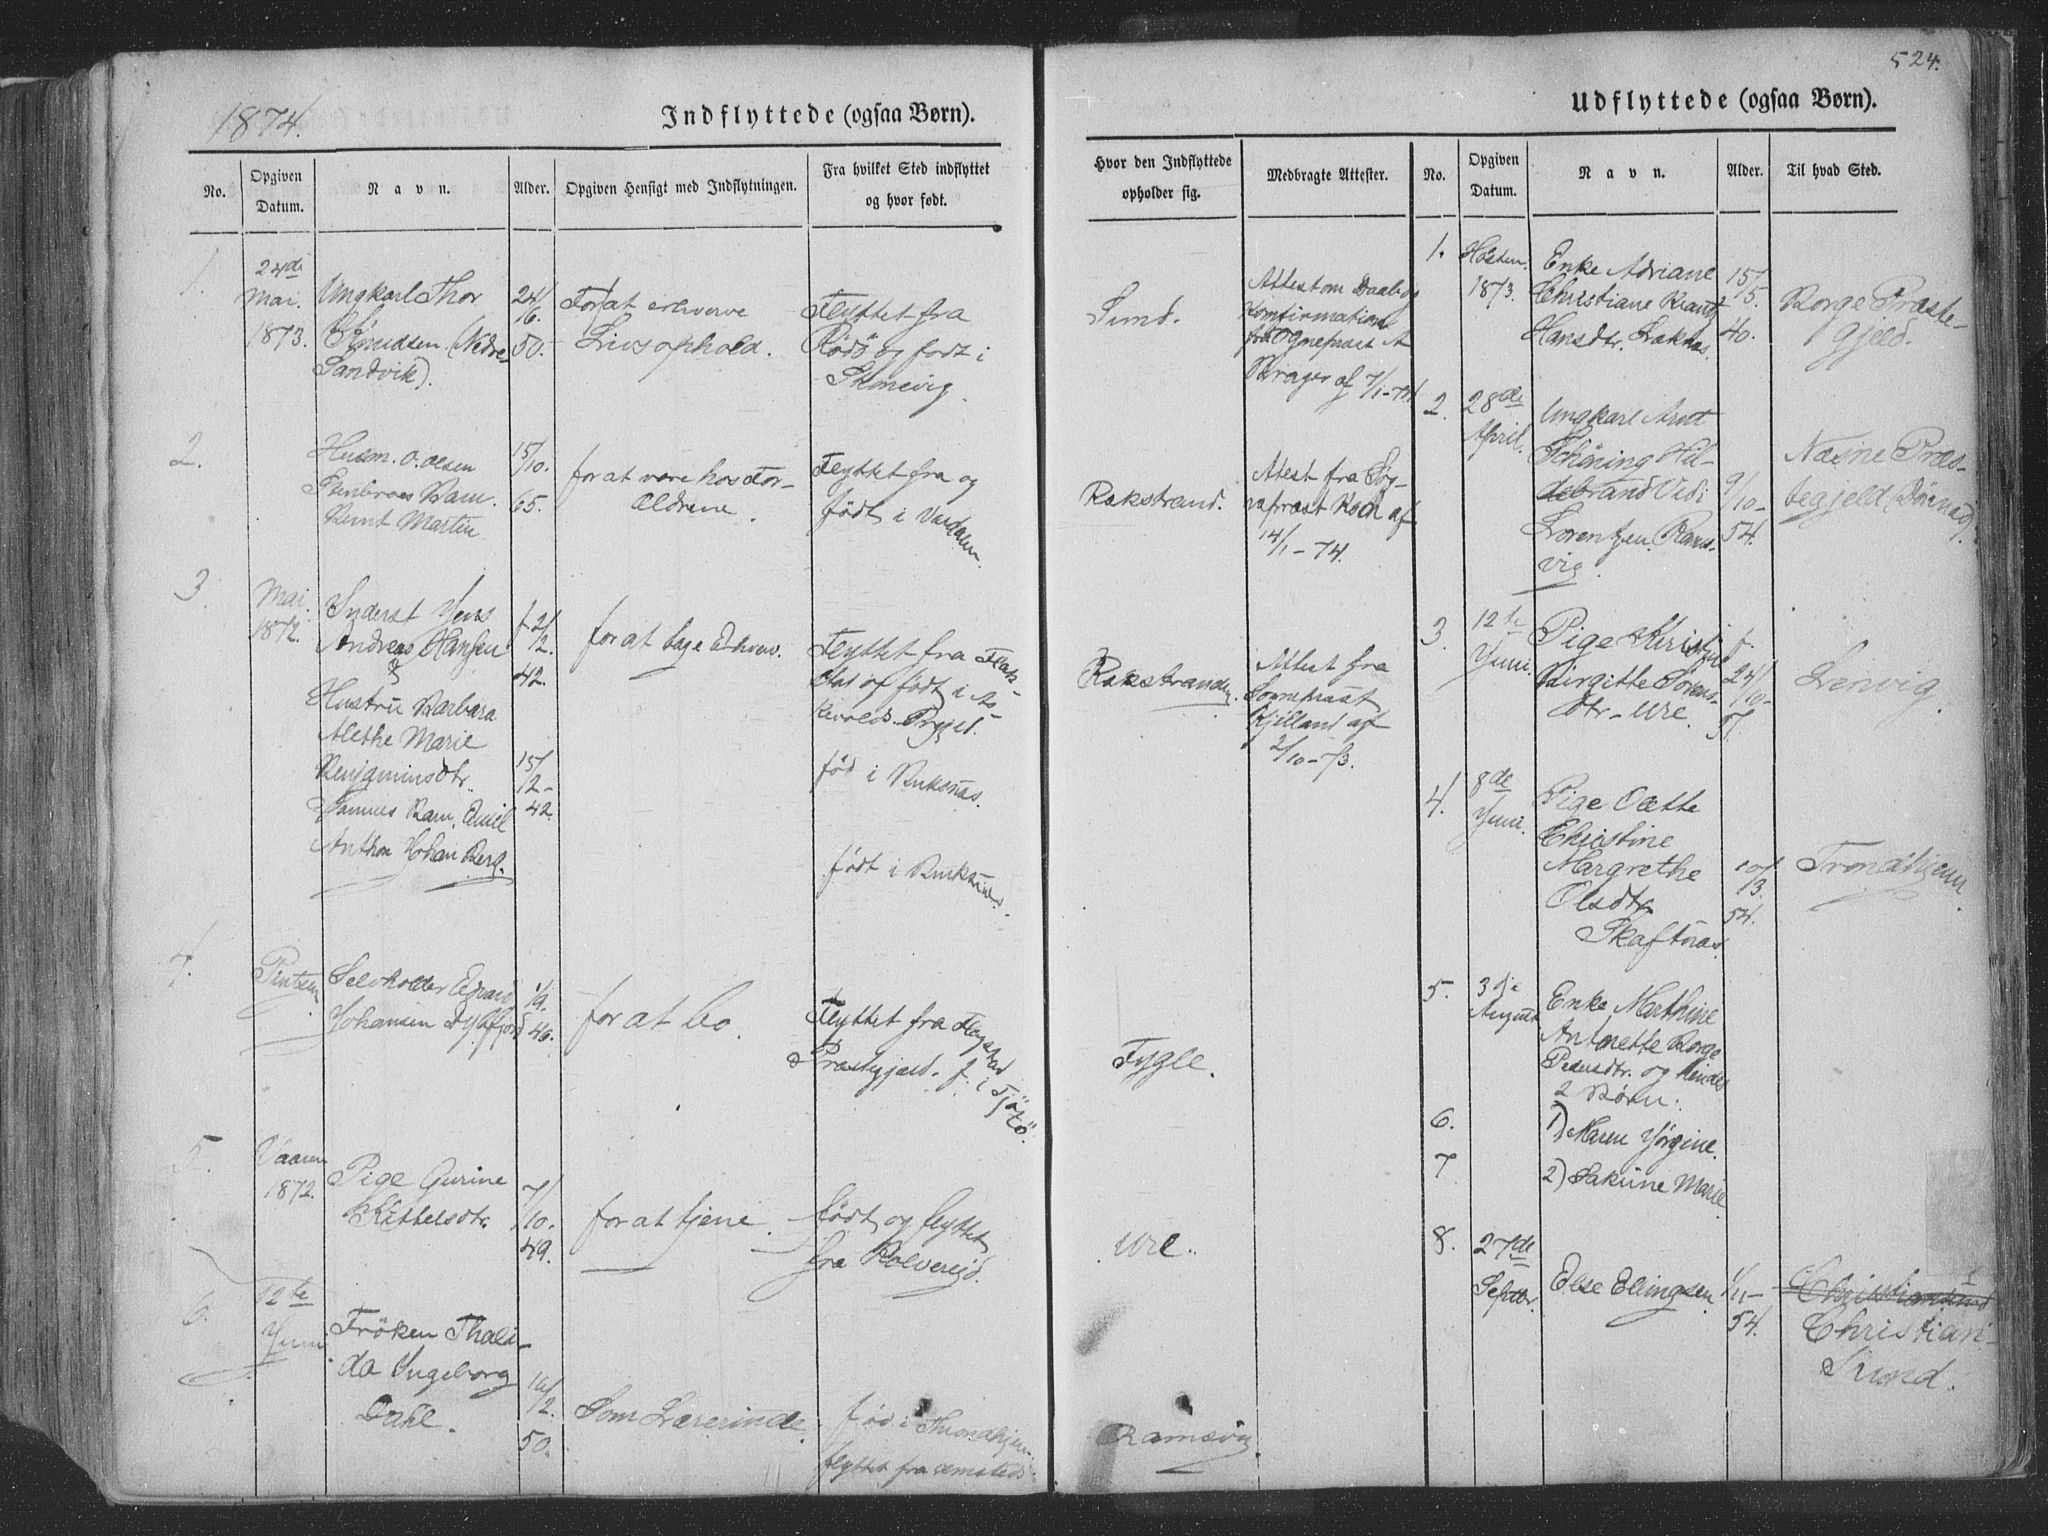 524.
1874.
Indflyttede (ogsaa Børn).
No.
Opgiven Datum.
Navn.
Alder.
Opgiven Hensigt med Indflytningen.
Fra hvilket Sted indflyttet
og hvor født.
Hvor den Indflyttede
opholder sig.
Medbragte Attester.
1.
24de
Mai.
1873.
Ungkarl Thor
Knudsen (Nedre
Sandvik).
24/6.
50.
For at erhverve
Livsophold.
Flyttet fra
Rödö og født i
Sund.
Attest om Daab og
Konfirmation
fra Sognepræst A
af 7/1-74.
2.
Husm. O. Olsen
Barn.
Bernt Martin
15/10.
65.
for at være hos For-
ældrene.
Flyttet fra og
født i Værdalen.
Rakstrand.
Attest fra Sog-
nepræst Koch af
14/1-74.
3.
Mai.
1872.
Inderst Jens
Andreas Hansen
&
Hustru Barbara
Alethe Marie
Benjaminsdtr.
Sammes Barn, Emil
Anthon Johan Berg.
f. 2/2.
42.
15/12-
42.
for at søge Erhverv.
Flyttet fra Flak-
stad og født i
Prgjeld.
født i Buksnæs.
født i Buksnæs.
Rakstranden.
Attest fra
Sognepræst
Kjelland af
2/10-73.
4.
Pintsen
Selvholder Edvard
Johansen
1/9.
46.
for at bo.
Flyttet fra Flagstad
Præstegjæld. f. i Tjötö.
Fygle.
5.
Vaaren
1872.
Pige Gurine
Kittelsdtr.
7/10.
49.
for at tjene.
født og flyttet
fra Kolvereid.
Ure.
6.
12te
Juni.
Fröken Thali-
da Ingeborg
Dahl.
16/2.
50.
Som Lærerinde.
fød i Throndhjem
flyttet fra
Ramsvig.
Udflyttede (ogsaa Børn).
No.
Opgiven Datum.
Navn.
Alder.
Til hvad Sted.
1.
Høsten.
1873.
Enke Adriane
Christiane
Hansdtr.
15/5.
40.
Borge Præste-
gjeld.
2.
28de
April.
Ungkarl Arnt
Schöning Hil-
debrand Vedi
Lorentzen. Rams-
vig.
9/10-
54.
Næsne Præs-
tegjeld (Dönnæs).
3.
12te
Juni.
Pige Kirstine
Birgitte Sörens-
dtr. Ure.
f.
24/10-
51.
Lenvig.
4.
8de
Juni.
Pige Oette
Christine
Margrethe
Olsdtr.
Skaftnæs
10/3.
54.
Trondhjem.
5.
3dje
August
Enke Marthine
Antonette Borge
Pedersdtr. og hendes
2 Børn.
6.
1) Maren Jørgine.
7
2) Sakrine Marie.
8.
27de
Septbr.
Else Elingsen.
1/11-
54.
Christiansund
Christian-
Sund.